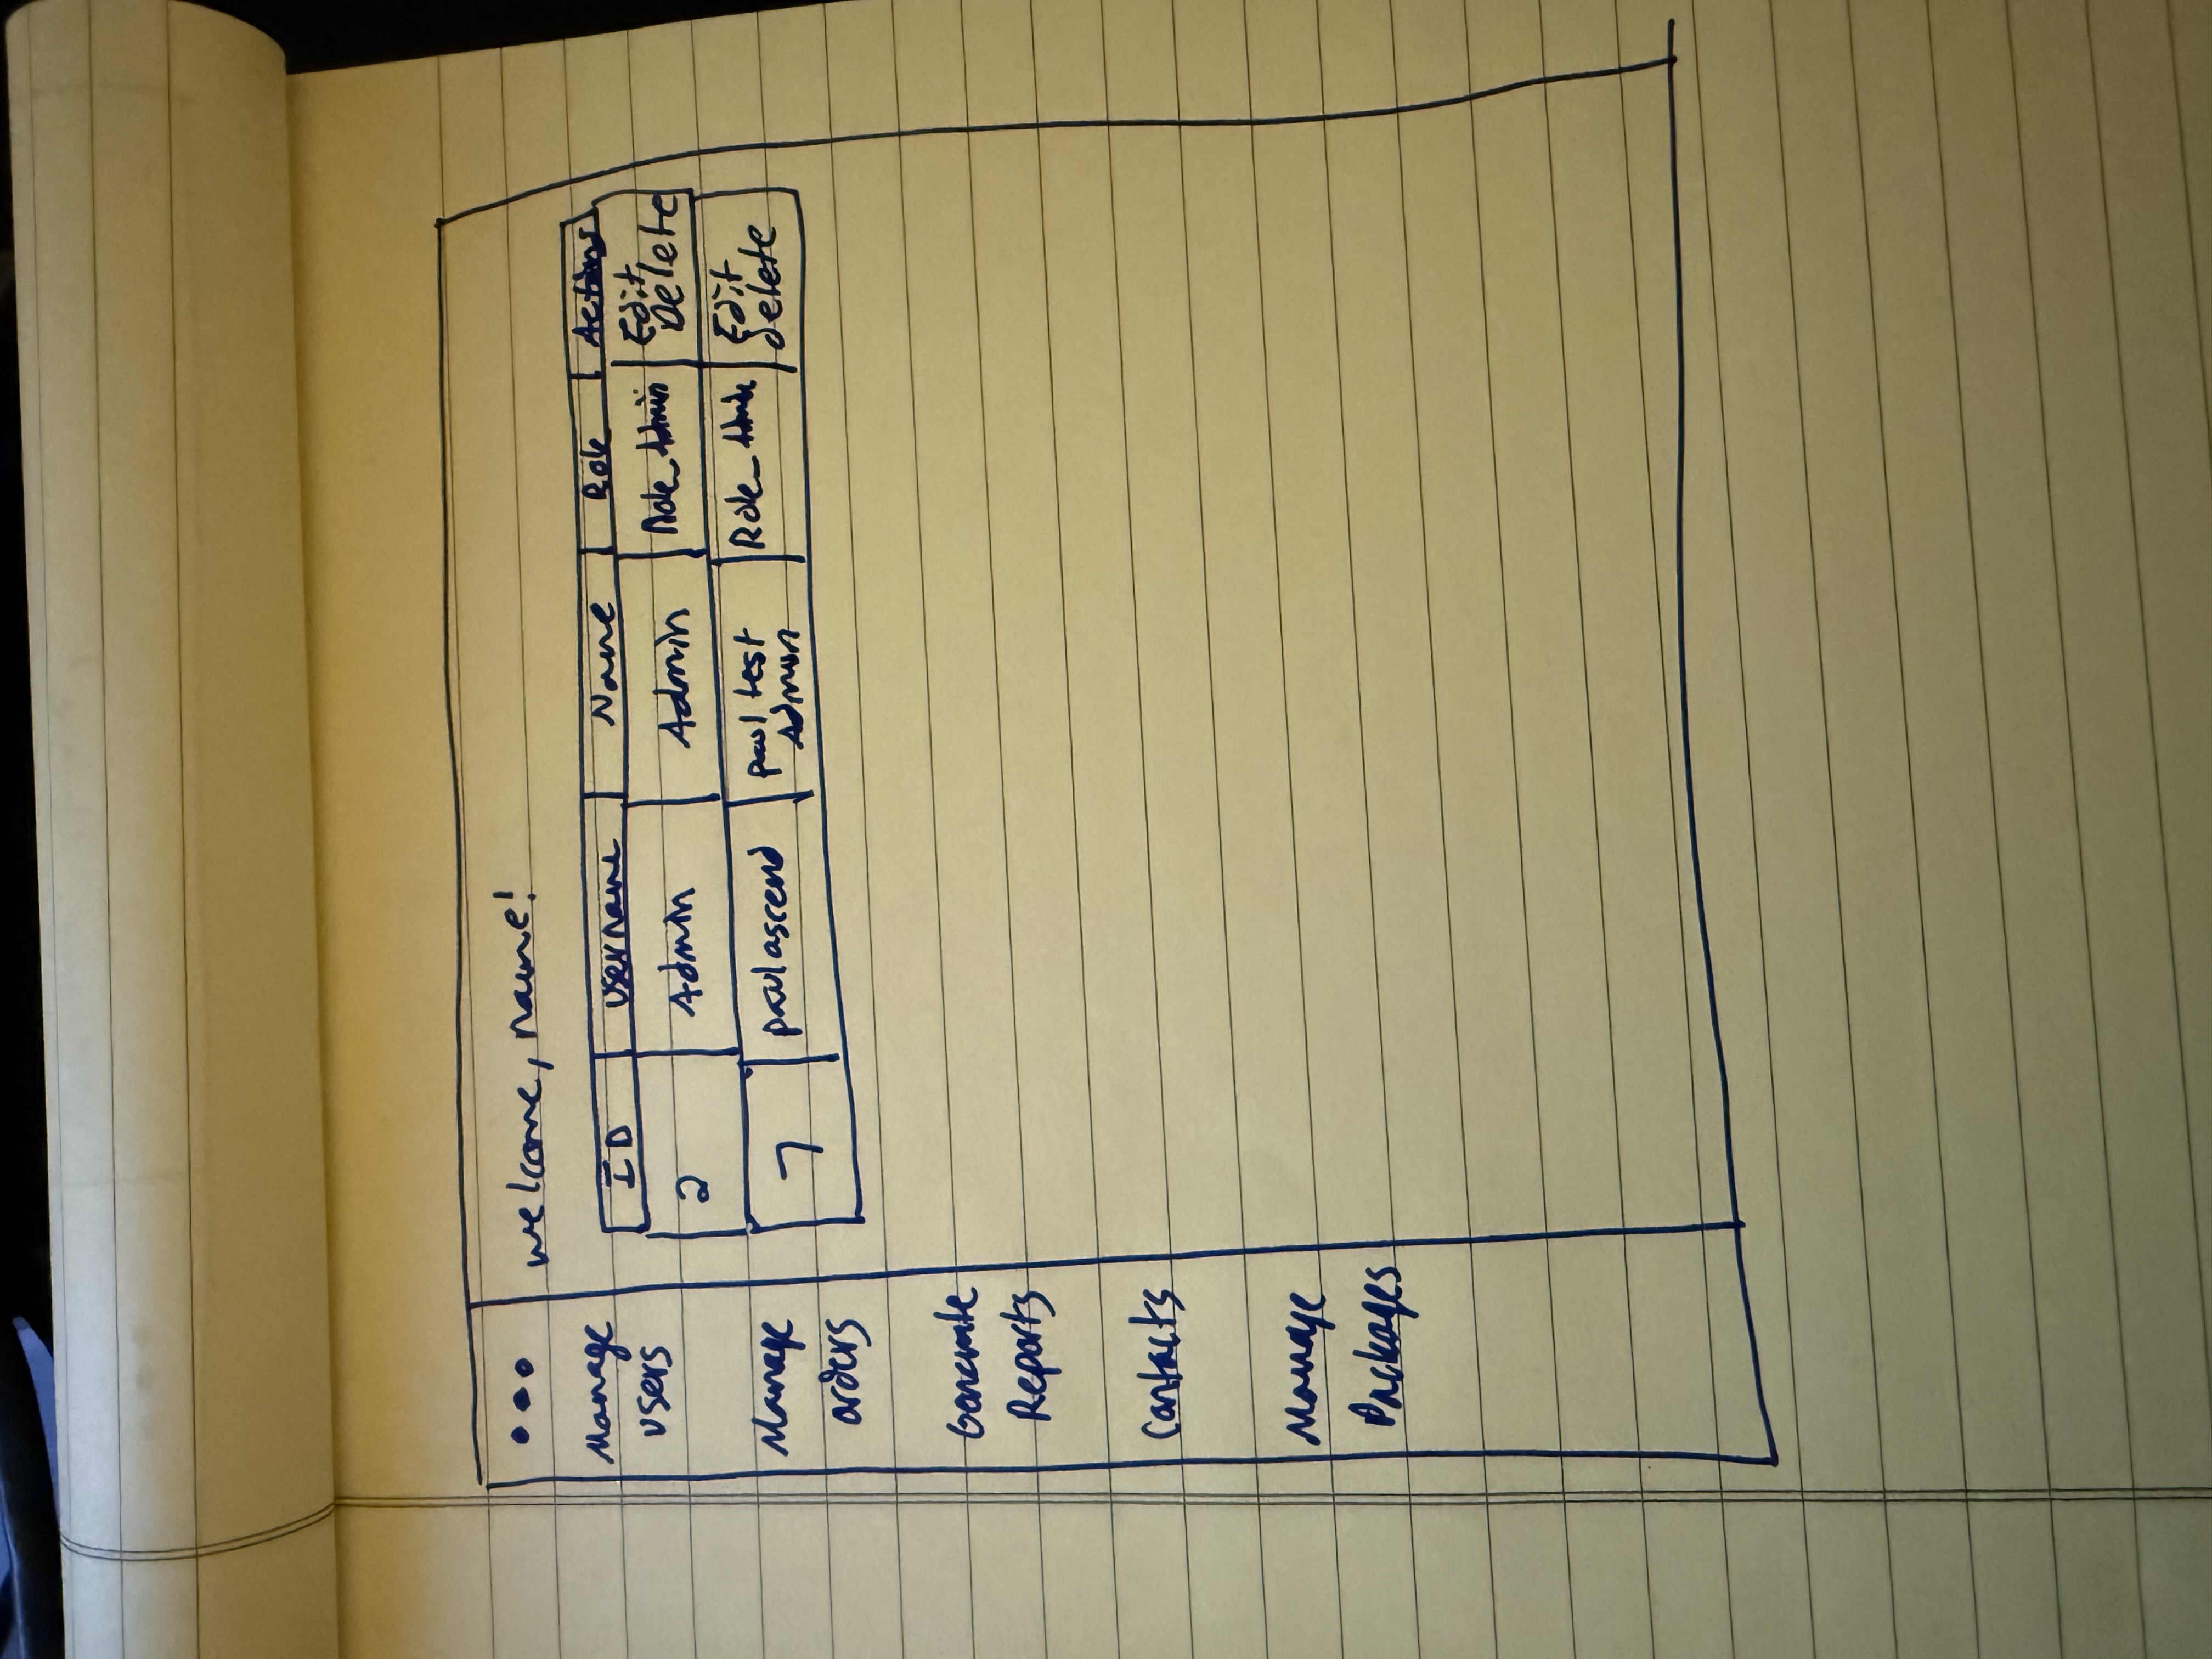 welcome, name!
Manage
users
Manage
orders
Generate
Reports
Contacts
Manage
Packages
ID username Name Role Actions
2 Admin Admin Role_Admin Edit
Delete
7 paulascend paul test Role_Admin Edit
Admin delete